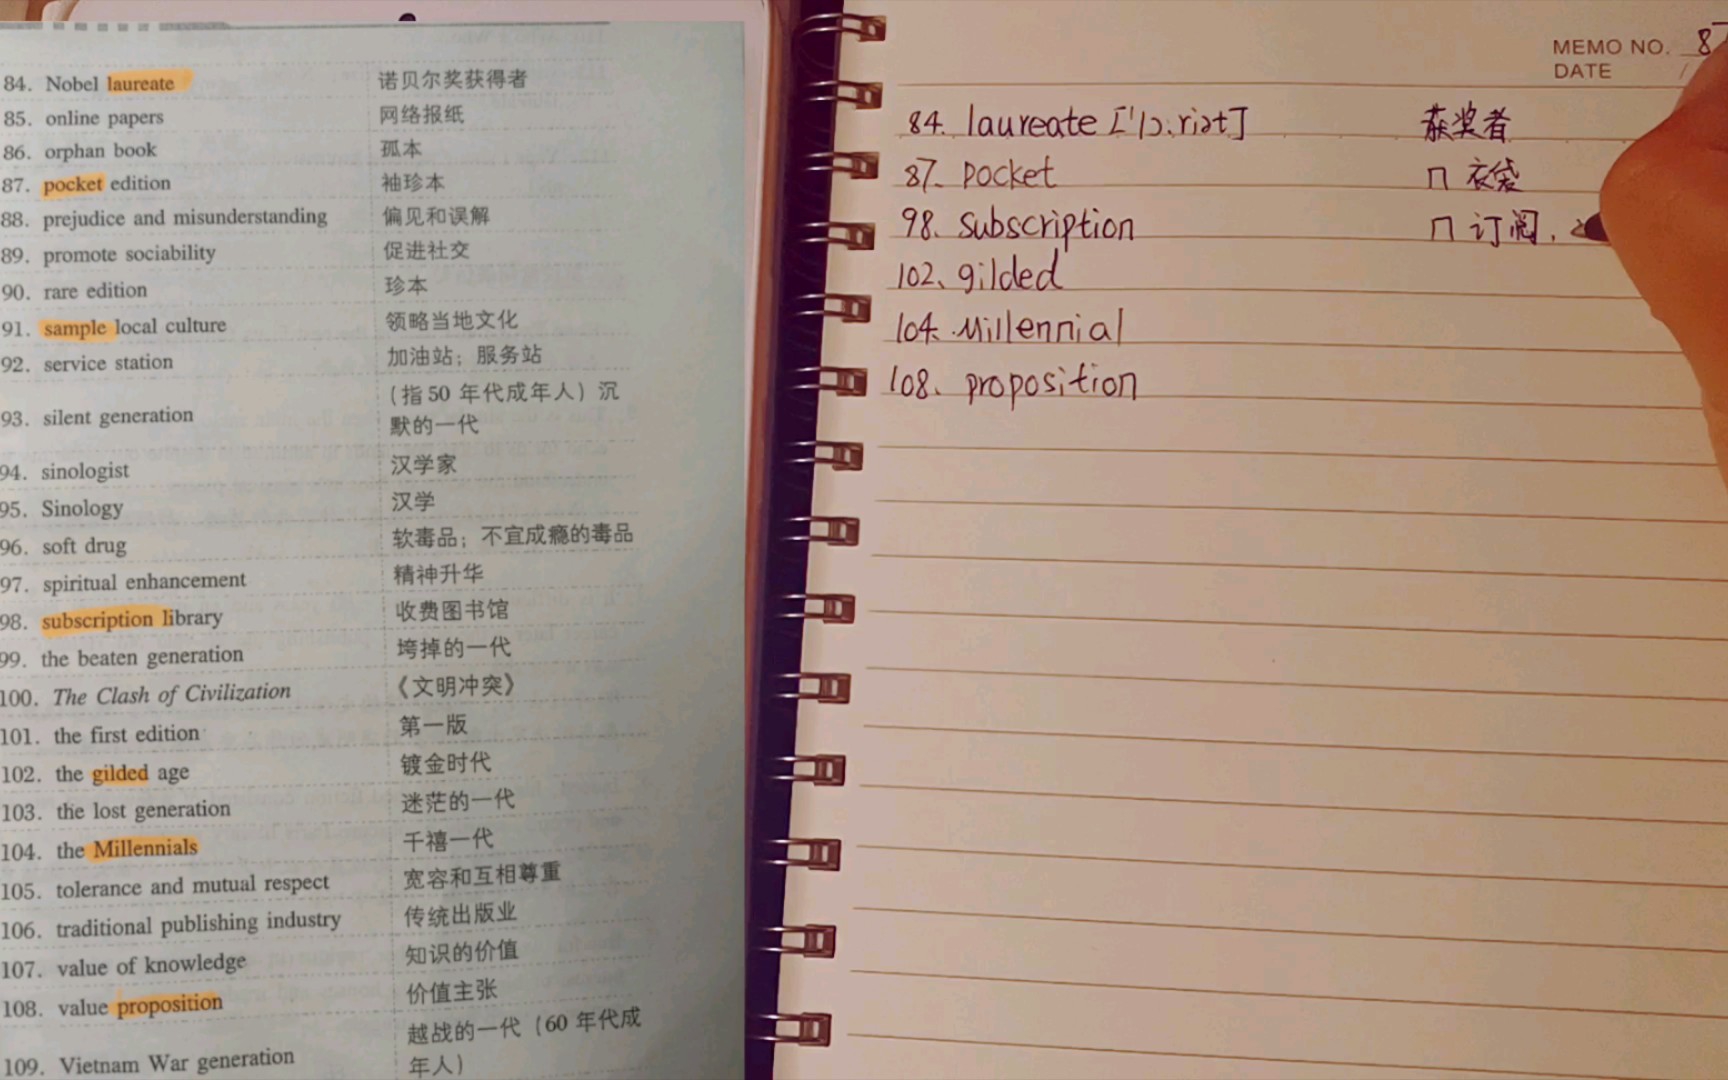 84. Nobel laureate 诺贝尔奖获得者
85. online papers 网络报纸
86. orphan book 孤本
87. pocket edition 袖珍本
88. prejudice and misunderstanding 偏见和误解
89. promote sociability 促进社交
90. rare edition 珍本
91. sample local culture 领略当地文化
92. service station 加油站；服务站
93. silent generation （指 50 年代成年人）沉
默的一代
94. sinologist 汉学家
95. Sinology 汉学
96. soft drug 软毒品；不宜成瘾的毒品
97. spiritual enhancement 精神升华
98. subscription library 收费图书馆
99. the beaten generation 垮掉的一代
100. The Clash of Civilization 《文明冲突》
101. the first edition 第一版
102. the gilded age 镀金时代
103. the lost generation 迷茫的一代
104. the Millennials 千禧一代
105. tolerance and mutual respect 宽容和互相尊重
106. traditional publishing industry 传统出版业
107. value of knowledge 知识的价值
108. value proposition 价值主张
109. Vietnam War generation 越战的一代（60 年代成
年人）
MEMO NO. 8
DATE /
84. laureate ['lɔ:riət] 获奖者
87. pocket n 衣袋
98. subscription n 订阅.
102. gilded
104. Millennial
108. proposition